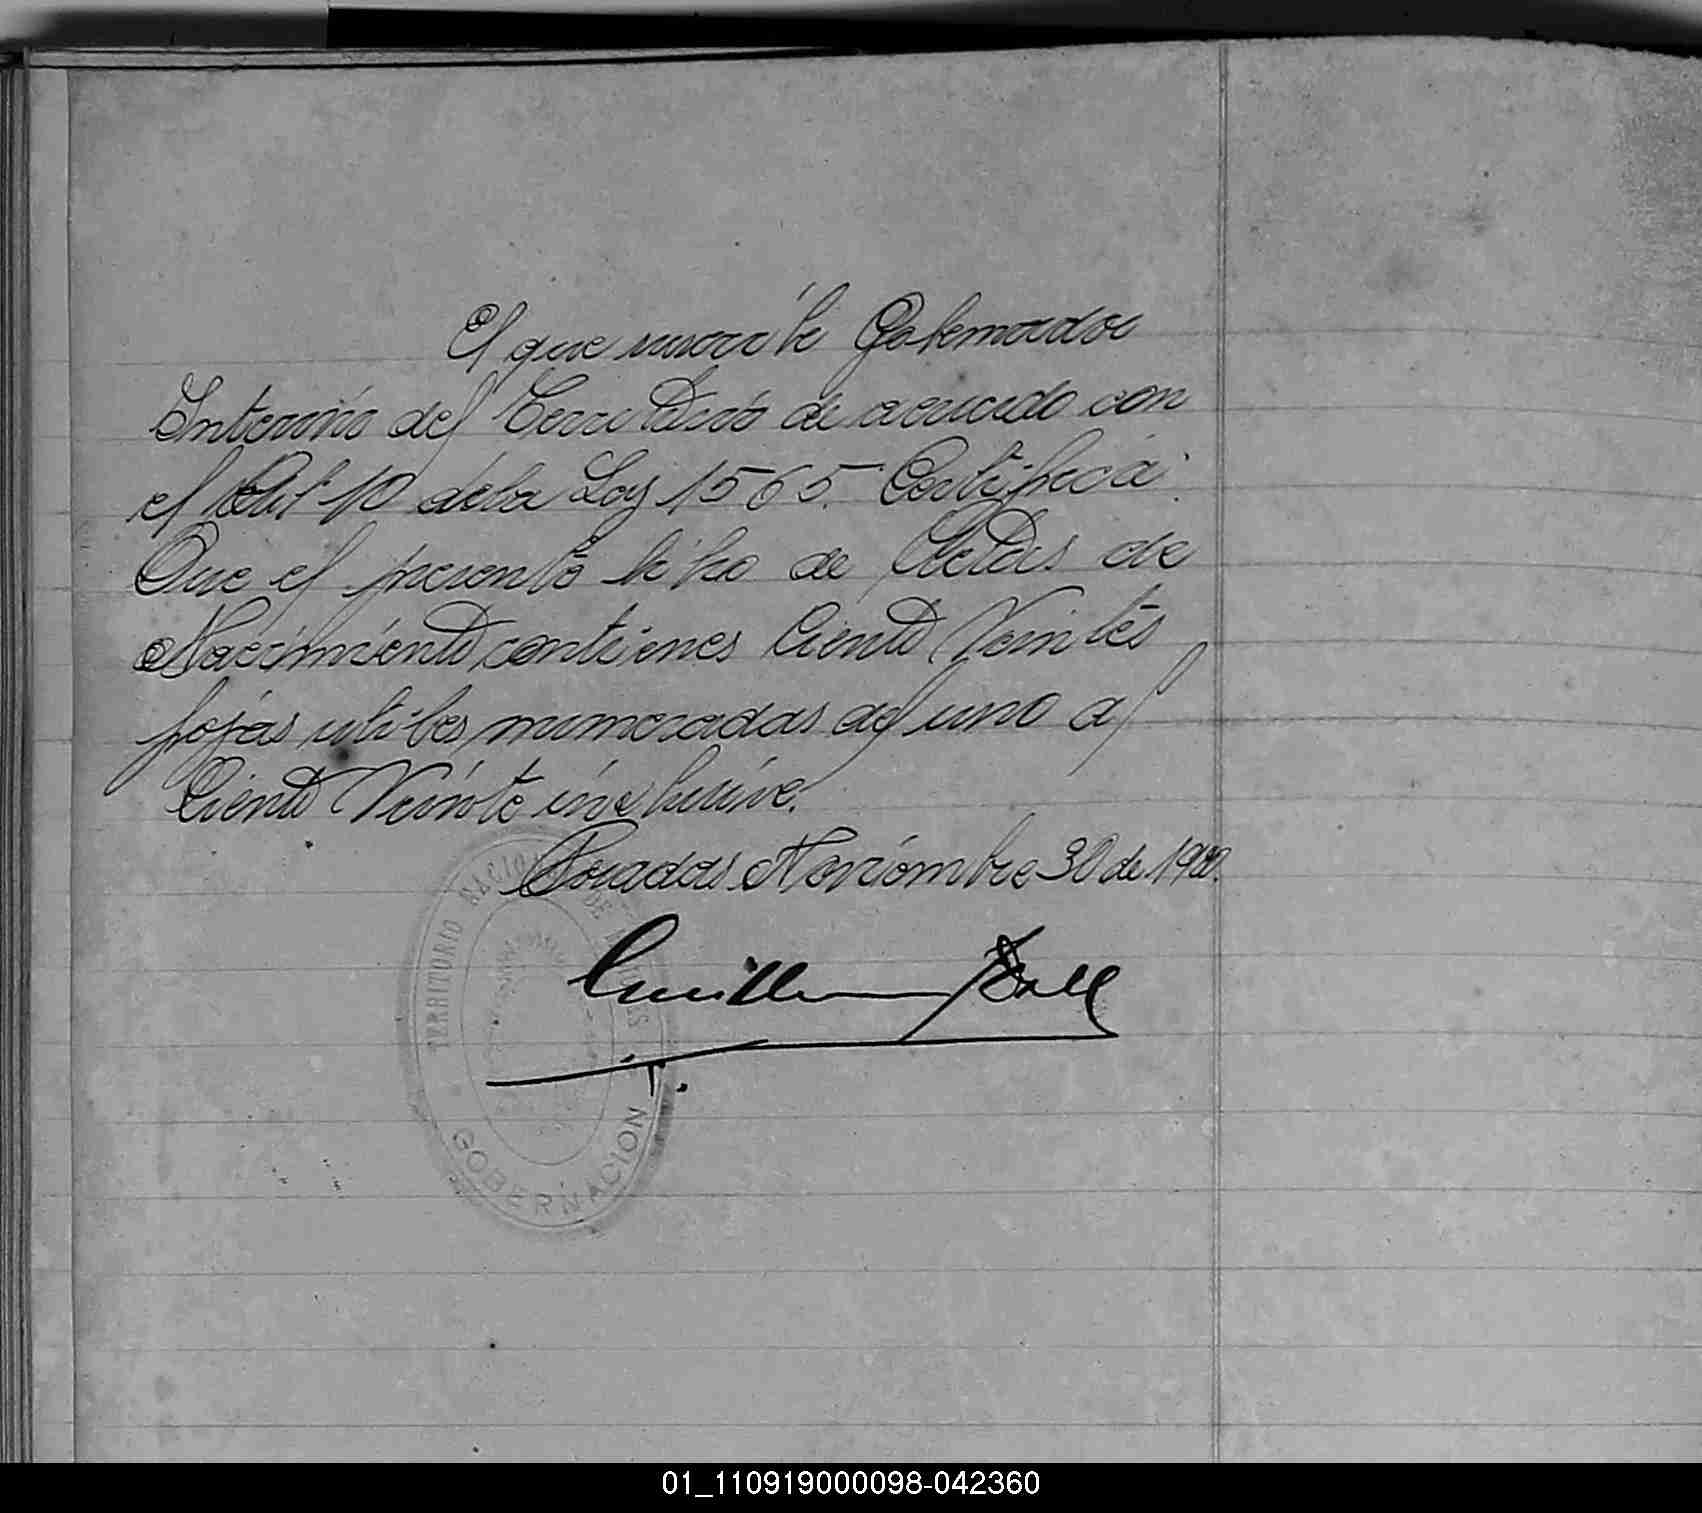 El que suscribe Gobernador
Interino del Territorio de acuerdo con
el Art 10 de la Ley 1565. Certifica:
Que el presente libro de Actas de
Nacimiento contienes Ciento Veintes
fojas utiles numeradas del uno al
Ciento Veinte inclusive.
Posadas Noviembre 30 de 1900.
Guillermo Doll
TERRITORIO NACIONAL DE MISIONES
GOBERNACION
01_110919000098-042360